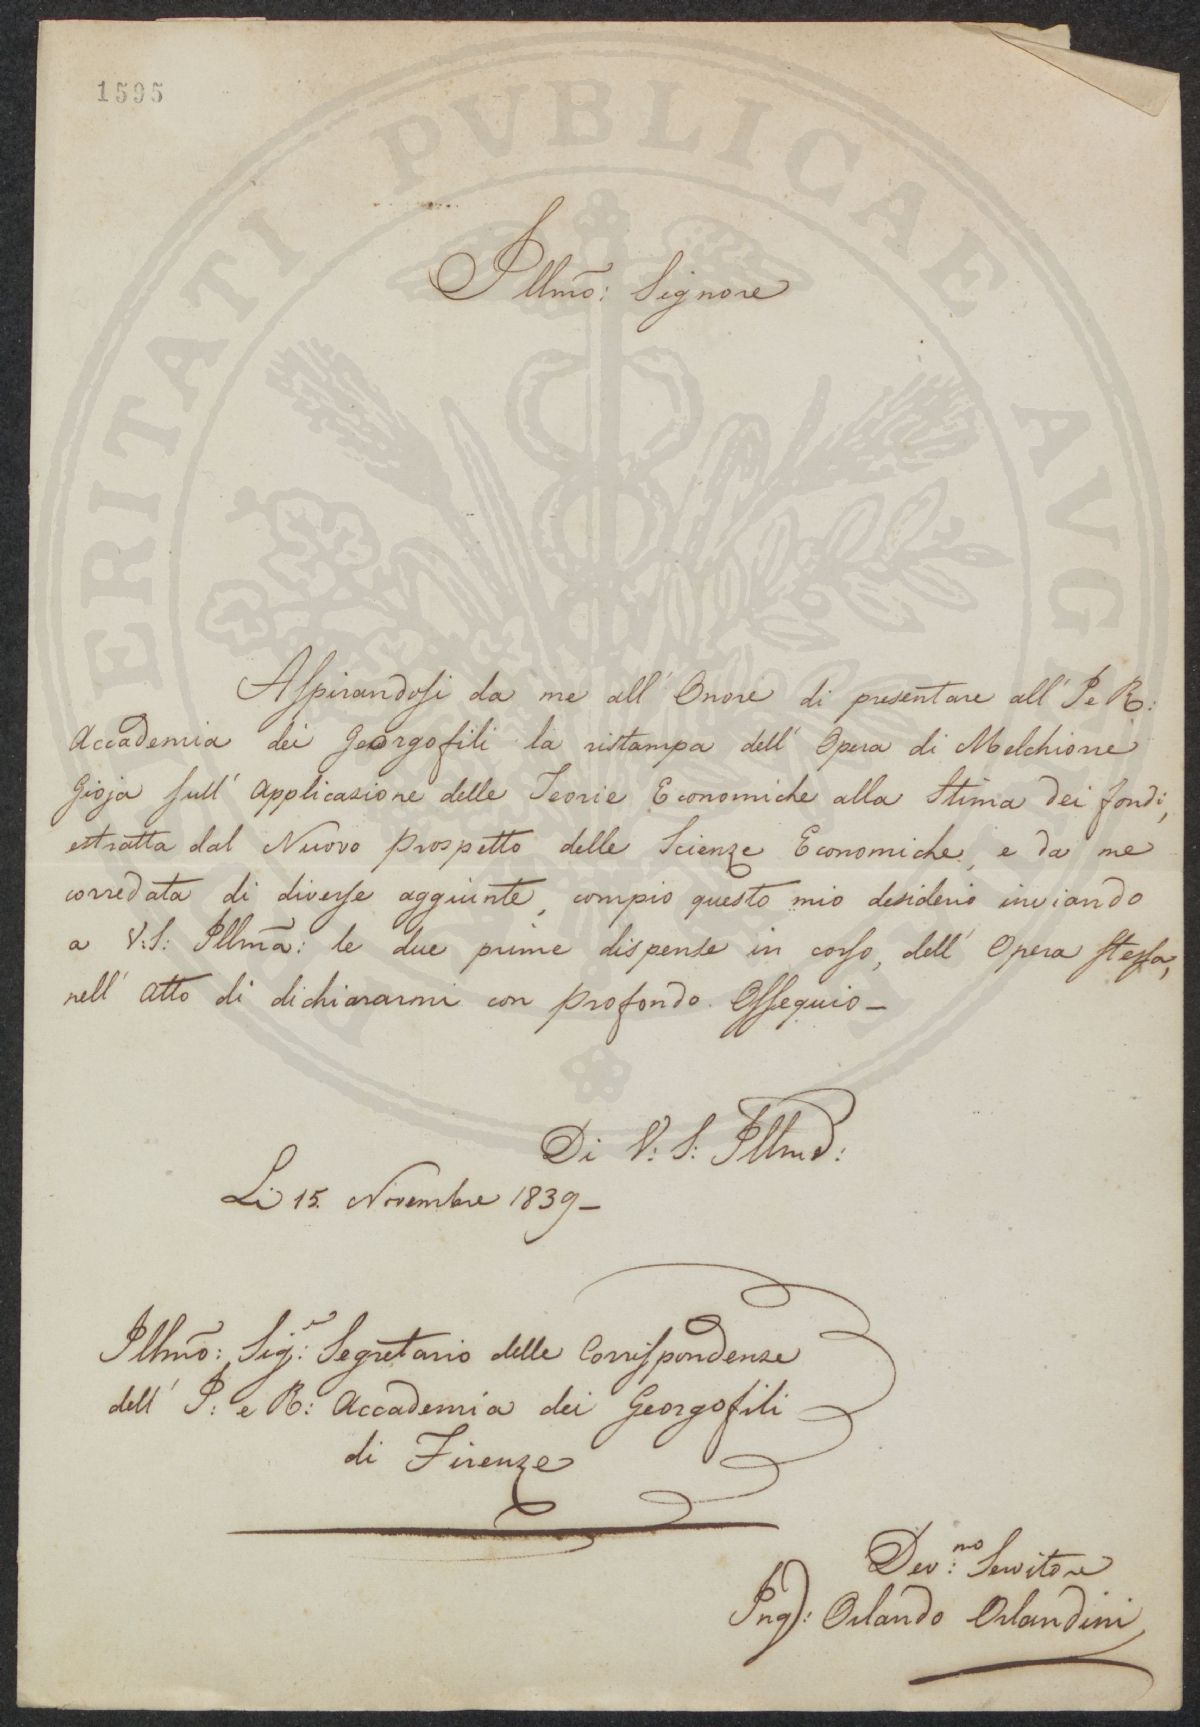 1595
PVBLICAE
PROSPERITATI
AVGENDAE
Illmo: Signore
Aspirandosi da me all' Onore di presentare all' I e R:
Accademia dei Georgofili la ristampa dell' Opera di Melchiorre
Gioja sull' Applicazione delle Teorie Economiche alla Stima dei fondi,
estratta dal Nuovo Prospetto delle Scienze Economiche, e da me
corredata di diverse aggiunte, compio questo mio desiderio inviando
a V: S: Illma: le due prime dispense in corso, dell' Opera stessa,
nell' atto di dichiararmi con profondo Ossequio –
Di V: S: Illma:
Li 15. Novembre 1839 –
Illmo: Sig:r Segretario delle Corrispondenze
dell' I: e R: Accademia dei Georgofili
di Firenze
Dev:mo Servitore
Ing: Orlando Orlandini